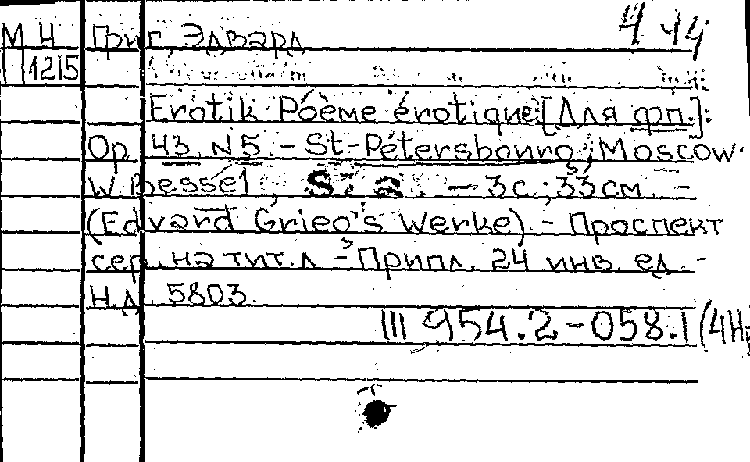 4 44
М Н Григ, Эдвард
П 1215
Erotik Póème érotique [Для фп.]:
Op 43 N5. – St-Pétersbourg; Moscow
W. Bessel, S. a. – 3 с.; 33 см. –
(Edvard Grieg's Werke). – Проспект
сер. на тит. л – Припл. 24 инв. ед. –
Н.д. 5803.
III 954.2-058.1 (4Н